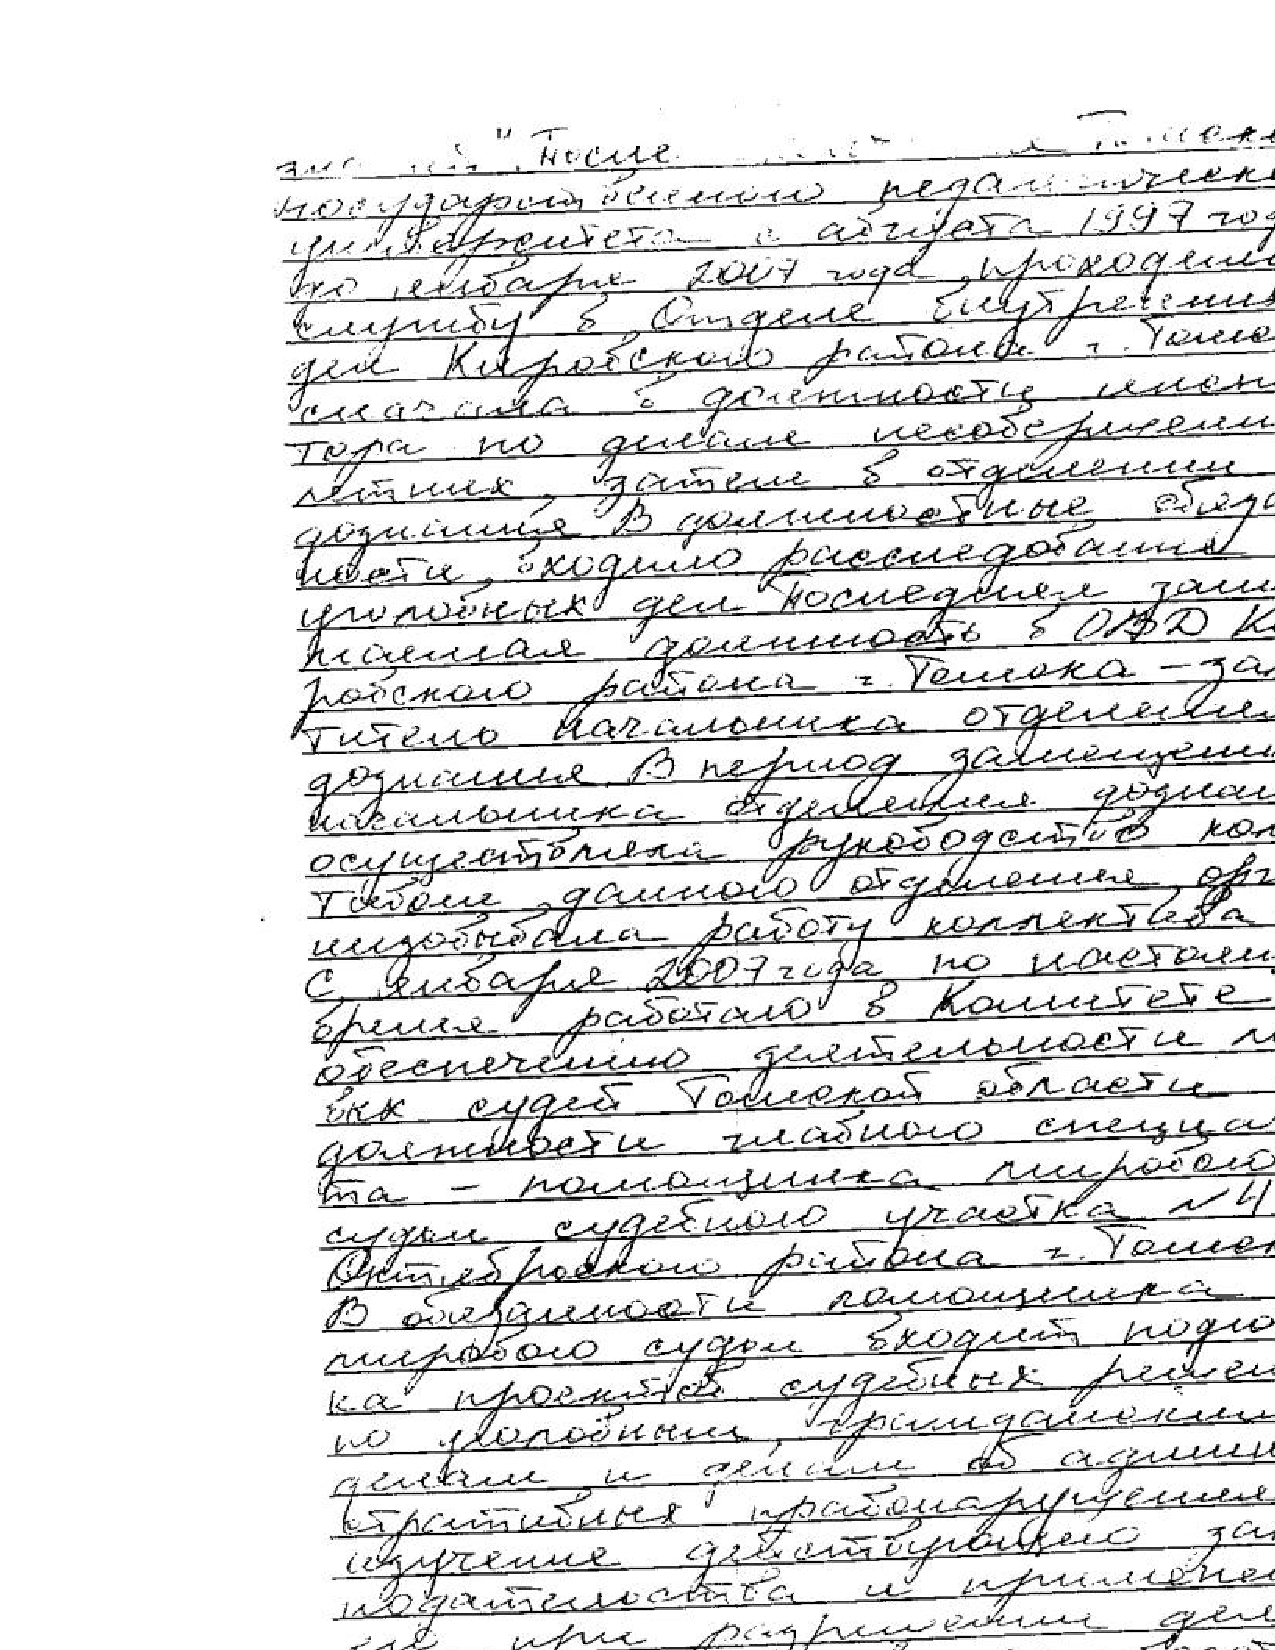 После Томск
государственного педагогическо
университета с августа 1997 год
по январь 2007 года проходила
службу в Отделе внутренни
дел Кировского района г. Томс
сначала в должности инспек
тора по делам несовершенно
летних, затем в отделении
дознания. В должностные обяза
ности, входило расследование
уголовных дел. Последняя заме
щаемая должность в ОВД Ки
ровского района г. Томска – зам
титель начальника отделения
дознания. В период замещени
начальника отделения дознан
осуществляла руководство кол
тивом данного отделения, орга
низовывала работу коллектива
С января 2007 года по настоящ
время работаю в Комитете
обеспечению деятельности ми
вых судей Томской области
должности главного специа
та – помощника мирового
судьи судебного участка №4
Октябрьского района г. Томск
В обязанности помощника
мирового судьи входит подго
ка проектов судебных решен
по уголовным, гражданским
делам и делам об админи
стративных правонарушения
изучение действующего зак
нодательства и применен
его при разрешении дел